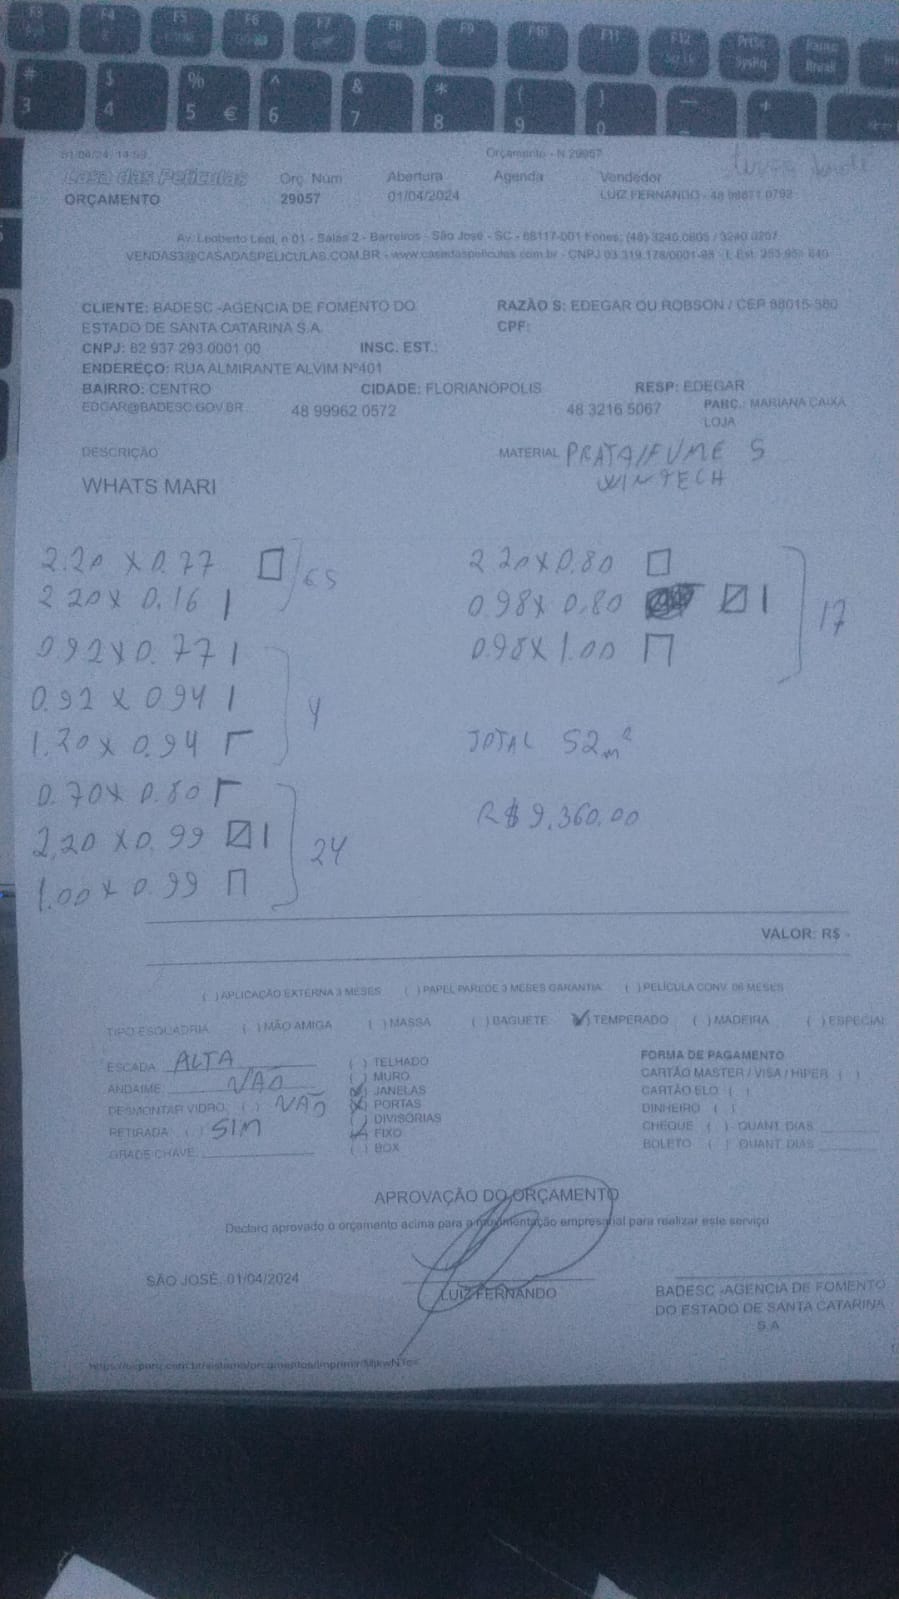 F3 F4 F5 F6 F7 F8 F9 F10 F11 F12 PrtSc SysRq Pause Break
# 3 $ 4 % 5 € ^ 6 & 7 * 8 ( 9 ) 0 _ - +
01/04/24, 14:53 Orçamento - N 29057
Casa das Películas Orç Num Abertura Agenda Vendedor
ORÇAMENTO 29057 01/04/2024 LUIZ FERNANDO - 48 98871 0792
Av. Leoberto Leal, n 01 - Salas 2 - Barreiros - São José - SC - 88117-001 Fones: (48) 3240 0805 / 3240 0207
VENDAS3@CASADASPELICULAS.COM.BR - www.casadaspeliculas.com.br - CNPJ 03.319.178/0001-98 - I. Est.
CLIENTE: BADESC -AGENCIA DE FOMENTO DO RAZÃO S: EDEGAR OU ROBSON / CEP 88015-380
ESTADO DE SANTA CATARINA S.A. CPF:
CNPJ: 82 937 293 0001 00 INSC. EST.:
ENDEREÇO: RUA ALMIRANTE ALVIM Nº401
BAIRRO: CENTRO CIDADE: FLORIANÓPOLIS RESP: EDEGAR
EDGAR@BADESC.GOV.BR 48 99962 0572 48 3216 5067 PARC.: MARIANA CAIXA
LOJA
DESCRIÇÃO MATERIAL PRATA/FUME S
WHATS MARI WINTECH
2.20 x 0.77 2 20x0.80
2 20x 0.16 0.98x 0.80
0.92x0.77 0.98x1.00 17
0.92 x 0.94 4
1.20x 0.94 TOTAL 52m²
0.70x 0.80
2,20 x0.99 24 R$9.360.00
1.00x 0.99
VALOR: R$ -
( ) APLICAÇÃO EXTERNA 3 MESES ( ) PAPEL PAREDE 3 MESES GARANTIA ( ) PELÍCULA CONV. 06 MESES
TIPO ESQUADRIA ( ) MÃO AMIGA ( ) MASSA ( ) BAGUETE (✓) TEMPERADO ( ) MADEIRA ( ) ESPECIAL
ESCADA ALTA ( ) TELHADO FORMA DE PAGAMENTO
( ) MURO CARTÃO MASTER / VISA / HIPER ( )
ANDAIME NÃO (✓) JANELAS CARTÃO ELO ( )
DESMONTAR VIDRO ( ) NÃO (x) PORTAS DINHEIRO ( )
( ) DIVISÓRIAS
RETIRADA ( ) SIM (✓) FIXO CHEQUE ( ) QUANT. DIAS
GRADE/CHAVE ( ) BOX BOLETO ( ) QUANT. DIAS
APROVAÇÃO DO ORÇAMENTO
Declaro aprovado o orçamento acima para a movimentação empresarial para realizar este serviço
SÃO JOSÉ, 01/04/2024 LUIZ FERNANDO BADESC -AGENCIA DE FOMENTO
DO ESTADO DE SANTA CATARINA
S.A.